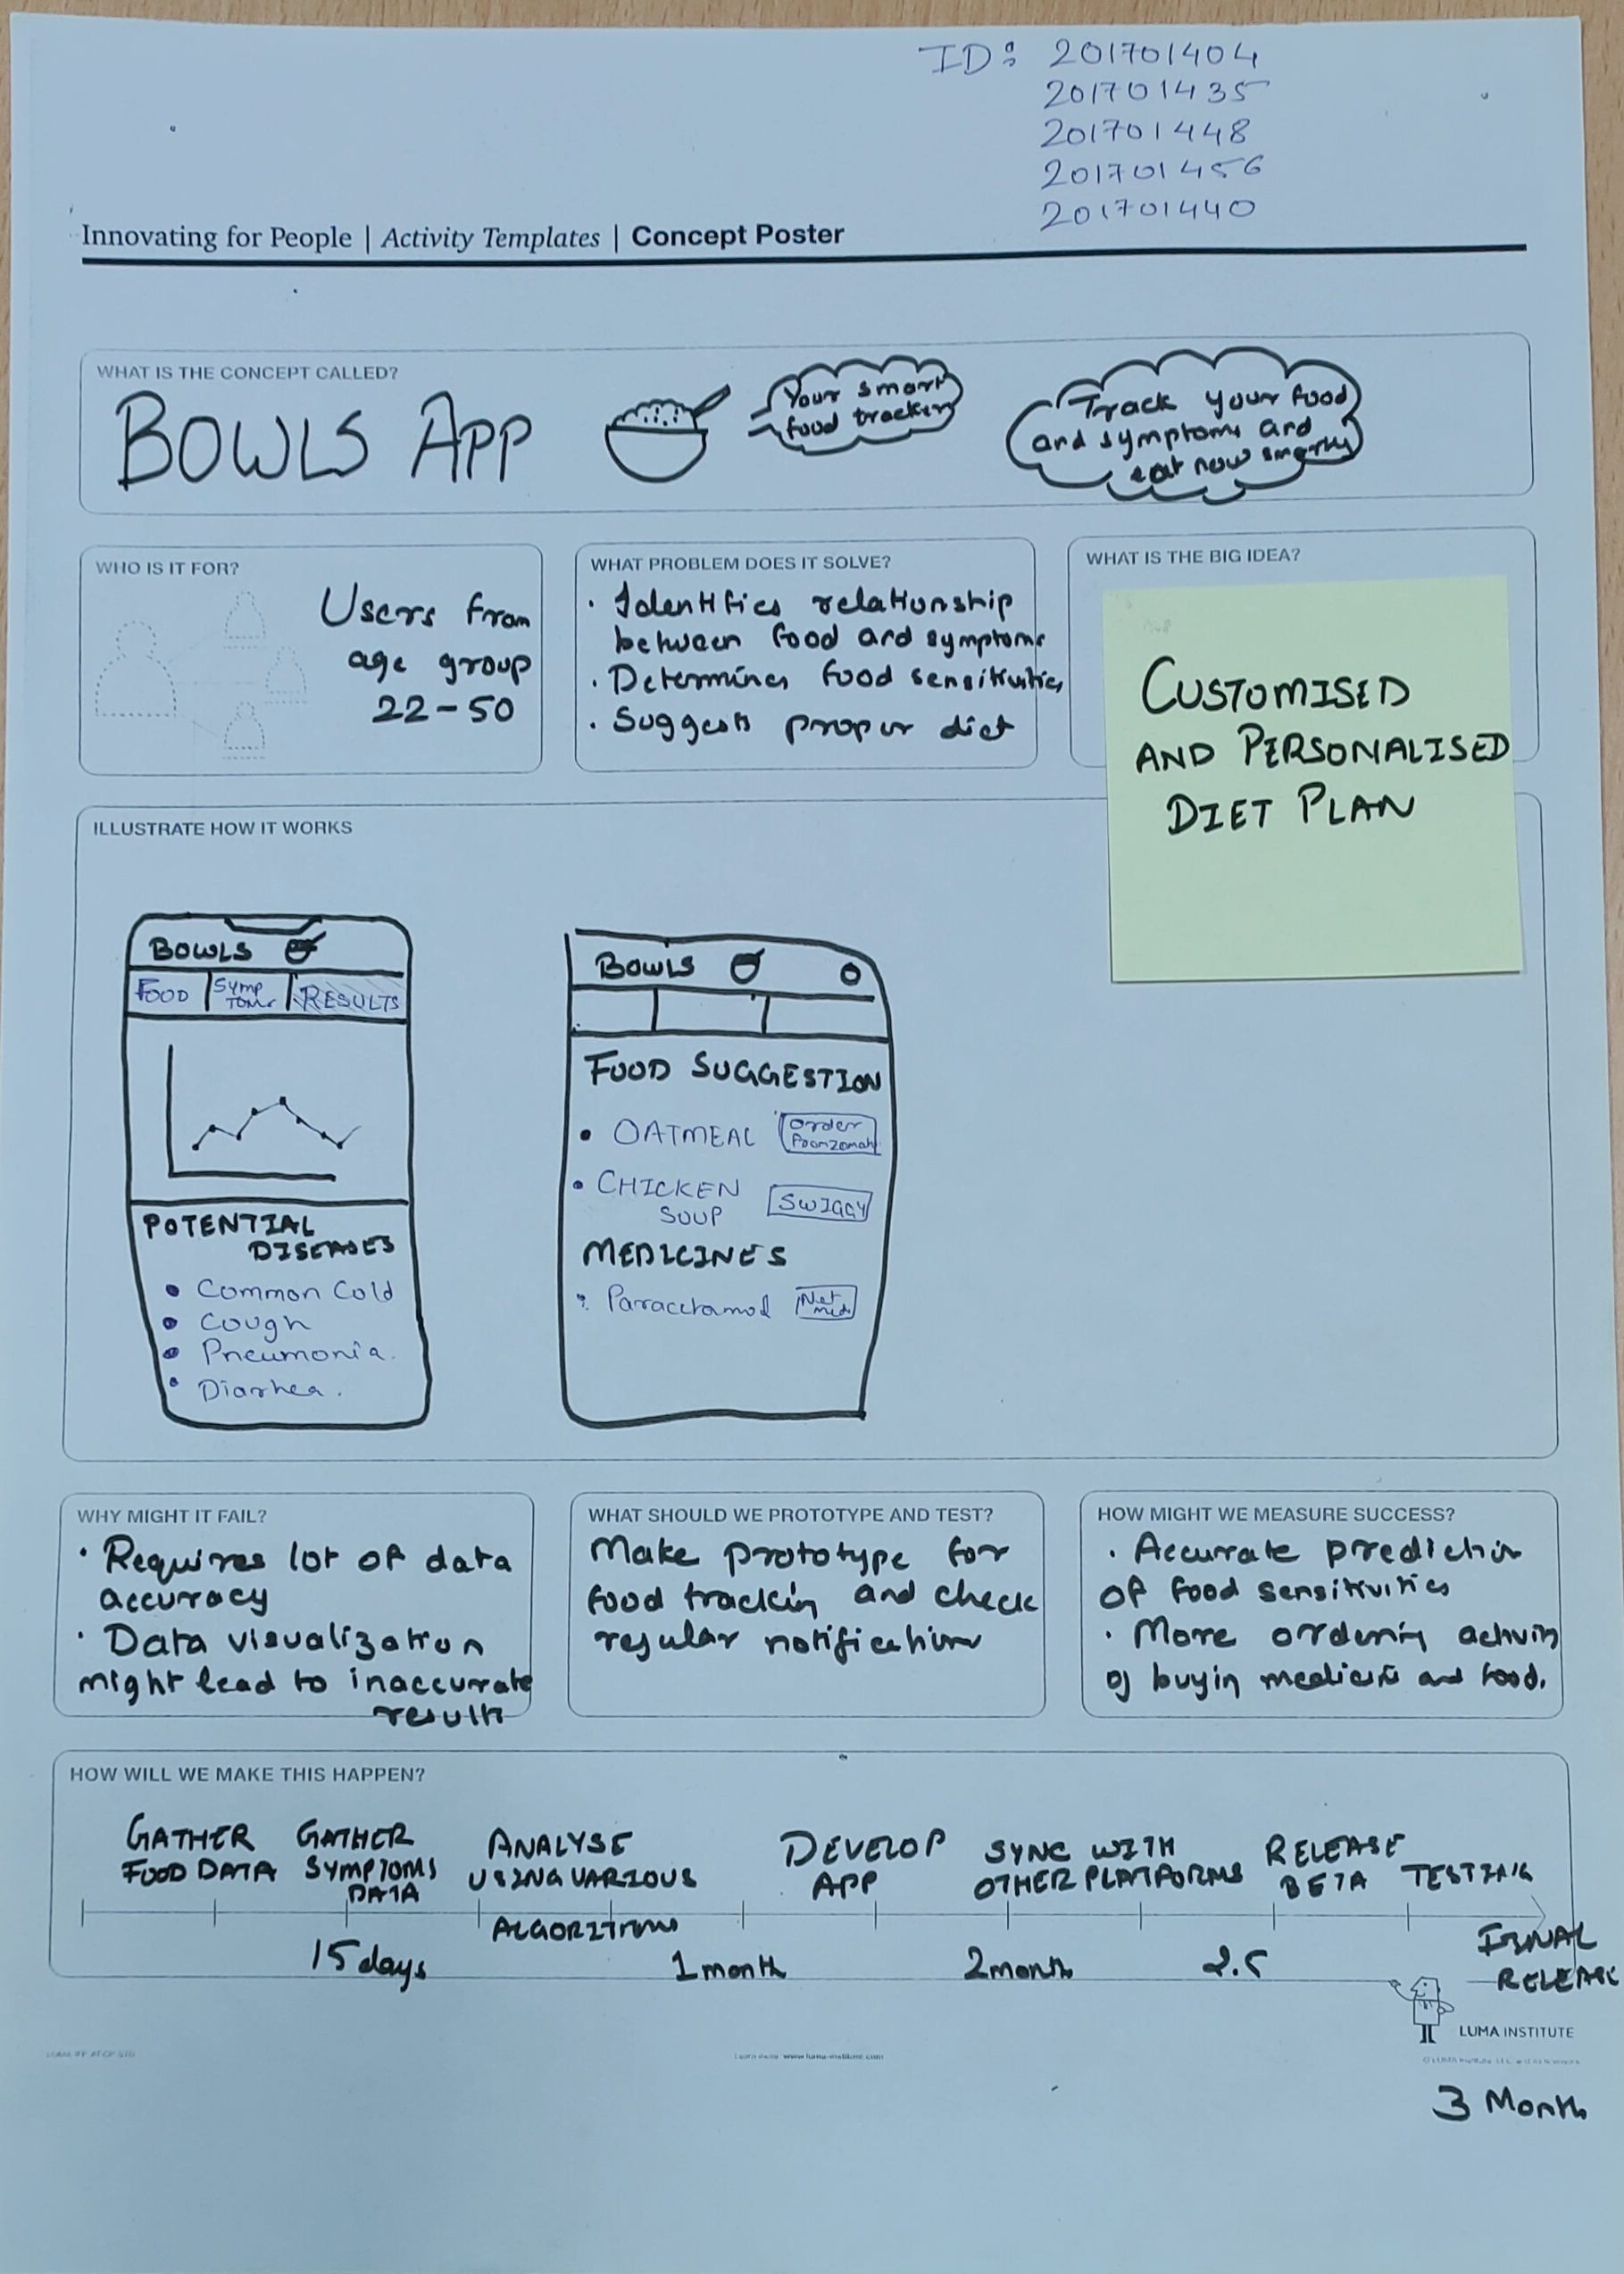 ID: 201701404
201701435
201701448
201701456
201701440
Innovating for People | Activity Templates | Concept Poster
WHAT IS THE CONCEPT CALLED?
BOWLS APP
Your smart
food tracker
Track your food
and symptoms and
eat now smartly
WHO IS IT FOR?
Users from
age group
22-50
WHAT PROBLEM DOES IT SOLVE?
· Identifies relationship
between food and symptoms
· Determines food sensitivities
· Suggests proper diet
WHAT IS THE BIG IDEA?
CUSTOMISED
AND PERSONALISED
DIET PLAN
ILLUSTRATE HOW IT WORKS
BOWLS
FOOD
SYMP
TOMS
RESULTS
POTENTIAL
DISEASES
• Common Cold
• Cough
• Pneumonia.
• Diarhea.
BOWLS
FOOD SUGGESTION
• OATMEAL
Order
• CHICKEN
SOUP
SWIGGY
MEDICINES
Paracetamol
Net
med
WHY MIGHT IT FAIL?
· Requires lot of data
accuracy
· Data visualization
might lead to inaccurate
results
WHAT SHOULD WE PROTOTYPE AND TEST?
Make prototype for
food trackin and check
regular notifications
HOW MIGHT WE MEASURE SUCCESS?
· Accurate prediction
of food sensitivities
· More ordering activity
of buyin medicine and food.
HOW WILL WE MAKE THIS HAPPEN?
GATHER
FOOD DATA
GATHER
SYMPTOMS
DATA
ANALYSE
USING VARIOUS
ALGORITHMS
DEVELOP
APP
SYNC WITH
OTHER PLATFORMS
RELEASE
BETA
TESTING
15 days
1 month
2 month
2.5
FINAL
RELEASE
LUMA INSTITUTE
3 Month